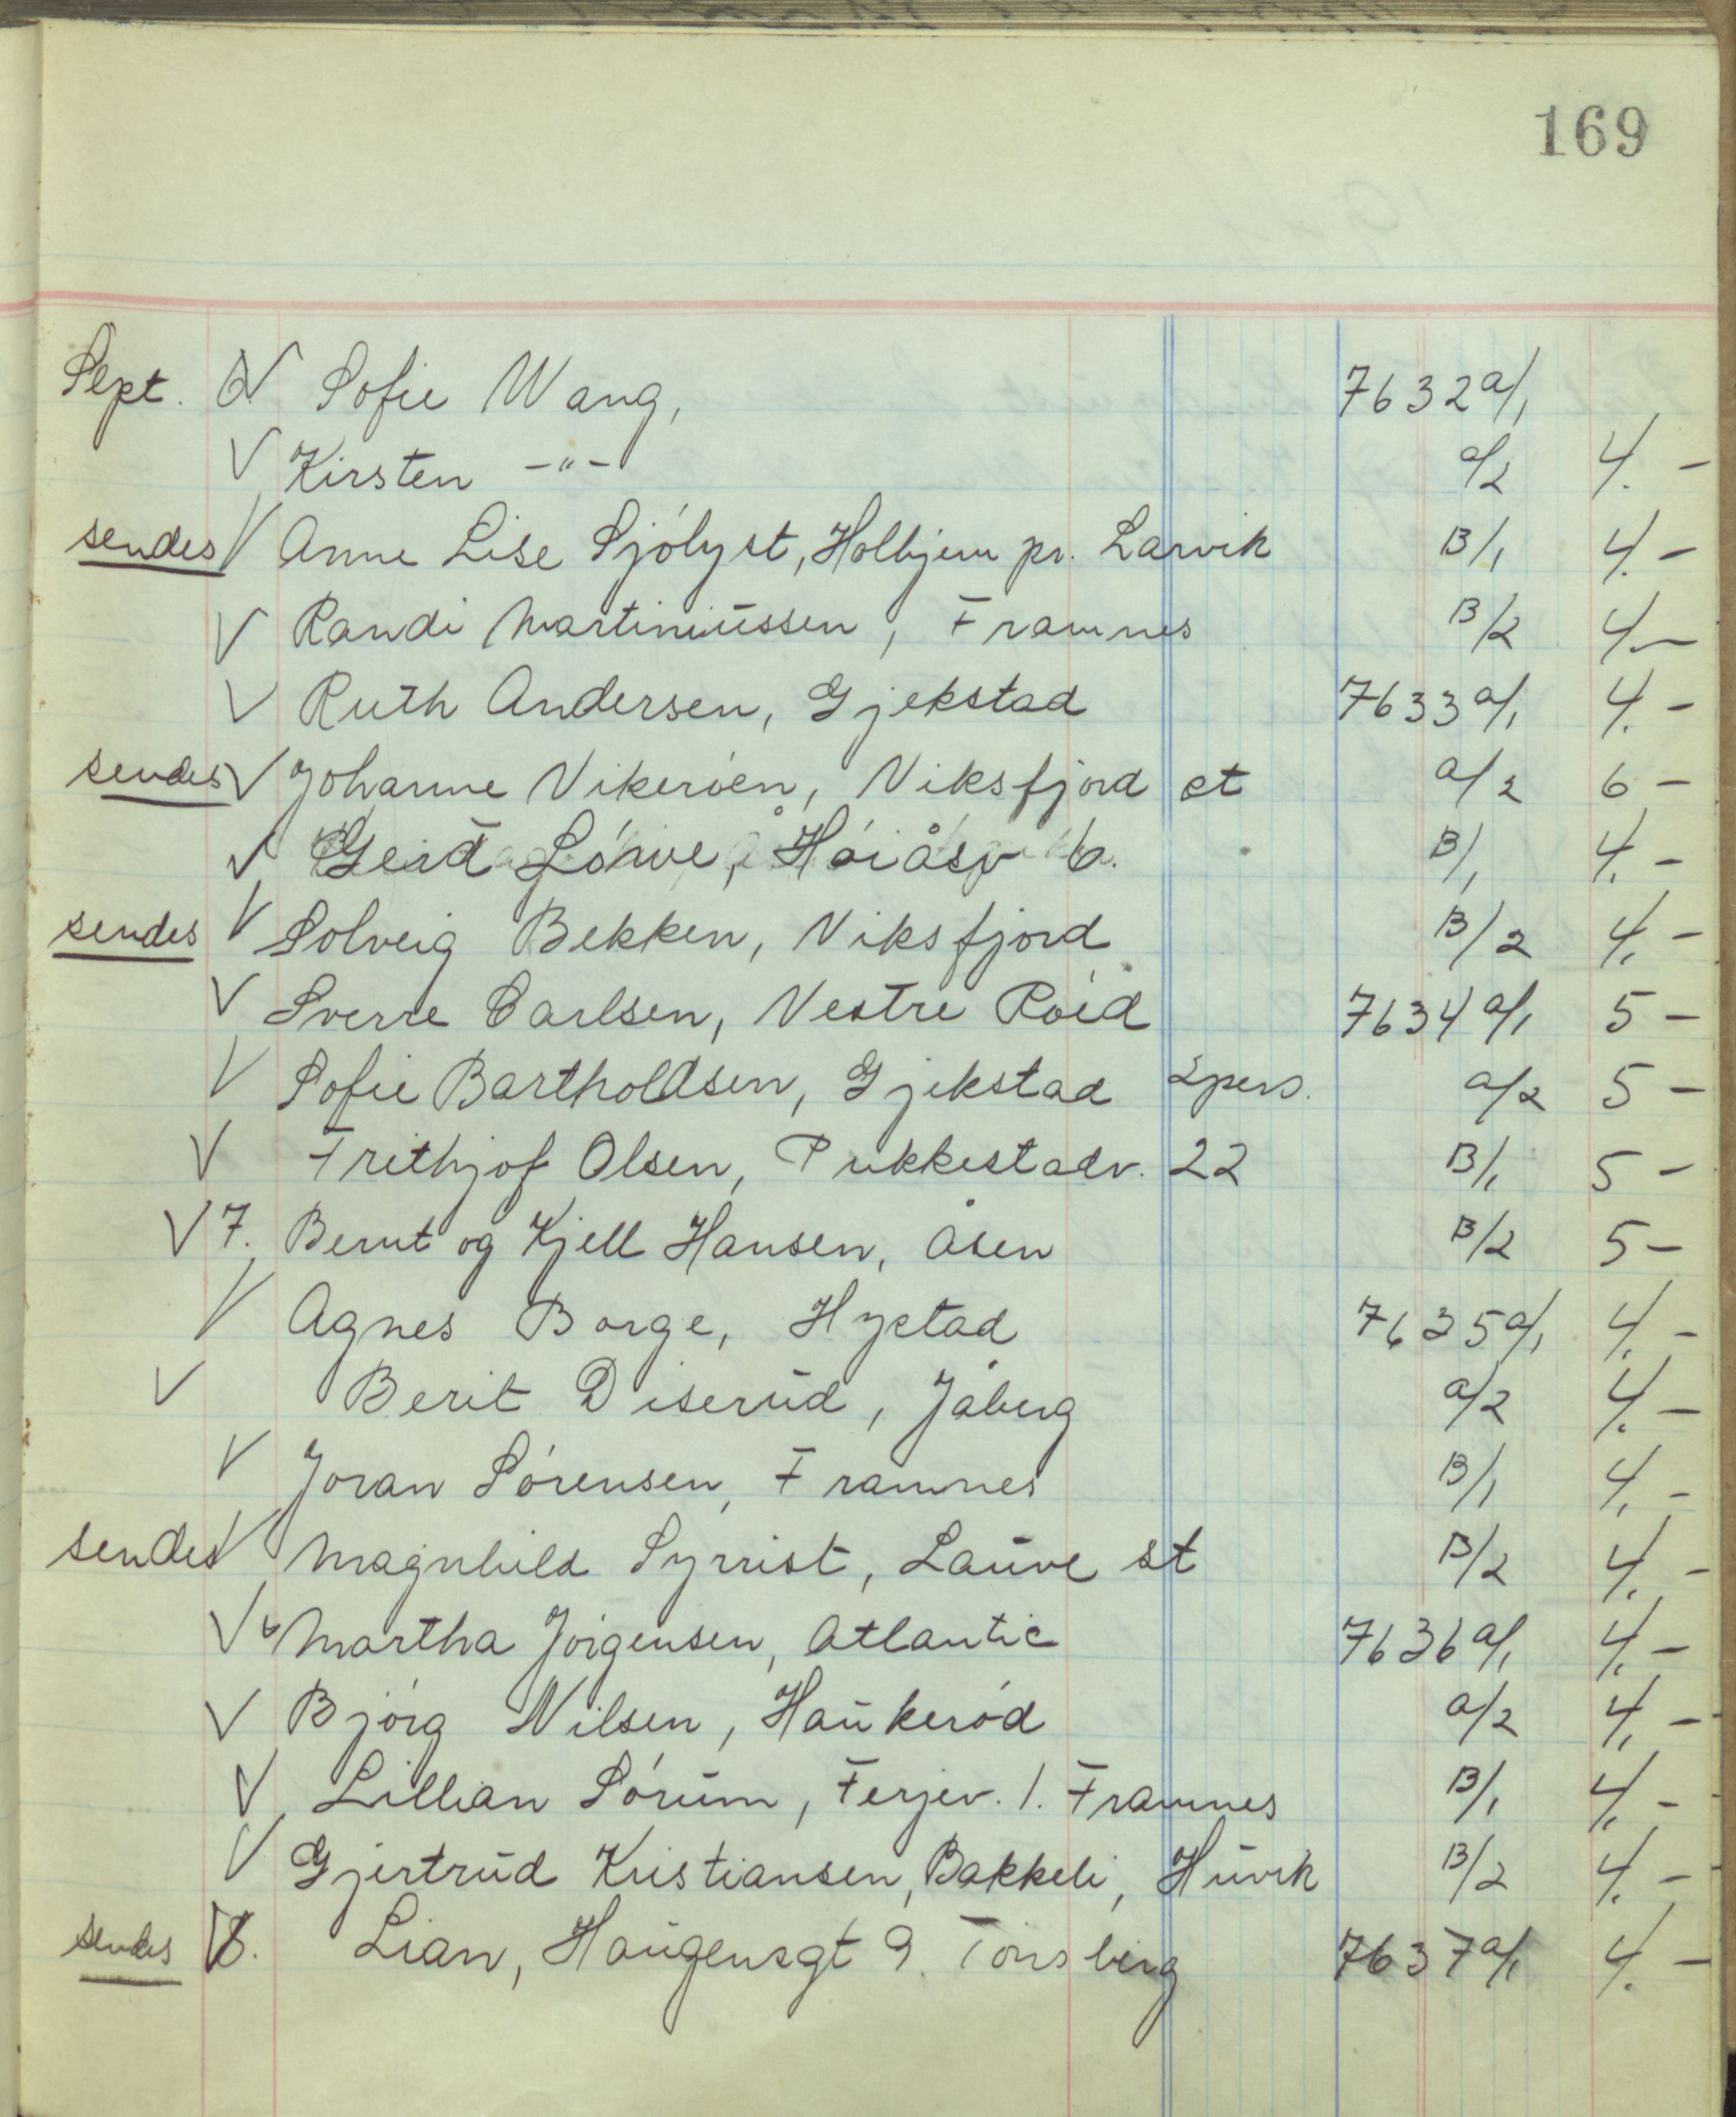 169
Sept. 6. V Sofie Wang, 7632 a/1
V Kirsten -"- a/2 4.-
sendes V Anne Lise Sjólyst, Holhjem pr. Larvik B/1 4.-
V Randi Martiniussen, Framnes B/2 4.-
V Ruth Andersen, Gjekstad 7633 a/1 4.-
sendes V Johanne Vikeróen, Viksfjord st a/2 6-
V Gerd Lórve, Hóiåsv 6. B/1 4.-
sendes V Solveig Bekken, Viksfjord B/2 4.-
V Sverre Carlsen, Vestre Róed 7634 a/1 5-
V Sofie Bartholdsen, Gjekstad 2 pers. a/2 5-
V Frithjof Olsen, Pukkestadv. 22 B/1 5-
V 7. Bernt og Kjell Hansen, Åsen B/2 5-
V Agnes Borge, Hystad 7635 a/1 4.-
V Berit Diserud, Jåberg a/2 4.-
V Joran Sórensen, Framnes B/1 4.-
sendes V Magnhild Syrrist, Lauve st B/2 4.-
V Martha Jórgensen, Atlantic 7636 a/1 4.-
V Bjórg Nilsen, Haukeród a/2 4.-
V Lillian Sórum, Ferjev. 1. Framnes B/1 4.-
V Gjertrud Kristiansen, Bakkeli, Huvik B/2 4.-
sendes V 8. Lian, Haugensgt 9. Tónsberg 7637 a/1 4.-